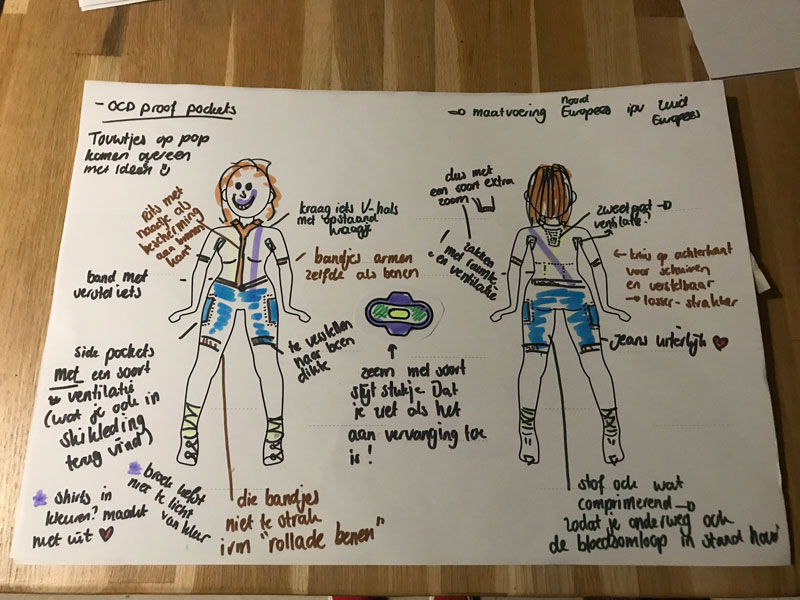 - OCD proof pockets
Touwtjes op pop
komen overeen
met ideeen
Rits met
naadje als
bescherming
aan binnen
kant
kraag iets V-hals
met opstaand
kraagje
bandjes armen
zelfde als benen
band met
verstel iets
te verstellen
naar been
dikte
side pockets
met een soort
ventilatie
(wat je ook in
skikleding
terug vind)
shirts in
kleuren? maakt
niet uit
broek liefst
niet te licht
van kleur
die bandjes
niet te strak
ivm "rollade benen"
zeem met soort
slijt stukje Dat
je ziet als het
aan vervanging toe
is!
maatvoering Noord
Europees ipv Zuid
Europees
dus met
een soort extra
zoom
zakken
met ruimte
en ventilatie
zweet gat
ventilatie!
kruis op achterkant
voor schuiven
en verstelbaar
losser - strakker
jeans uiterlijk
stof ook wat
comprimerend
zodat je onderweg ook
de bloedsomloop in stand houd